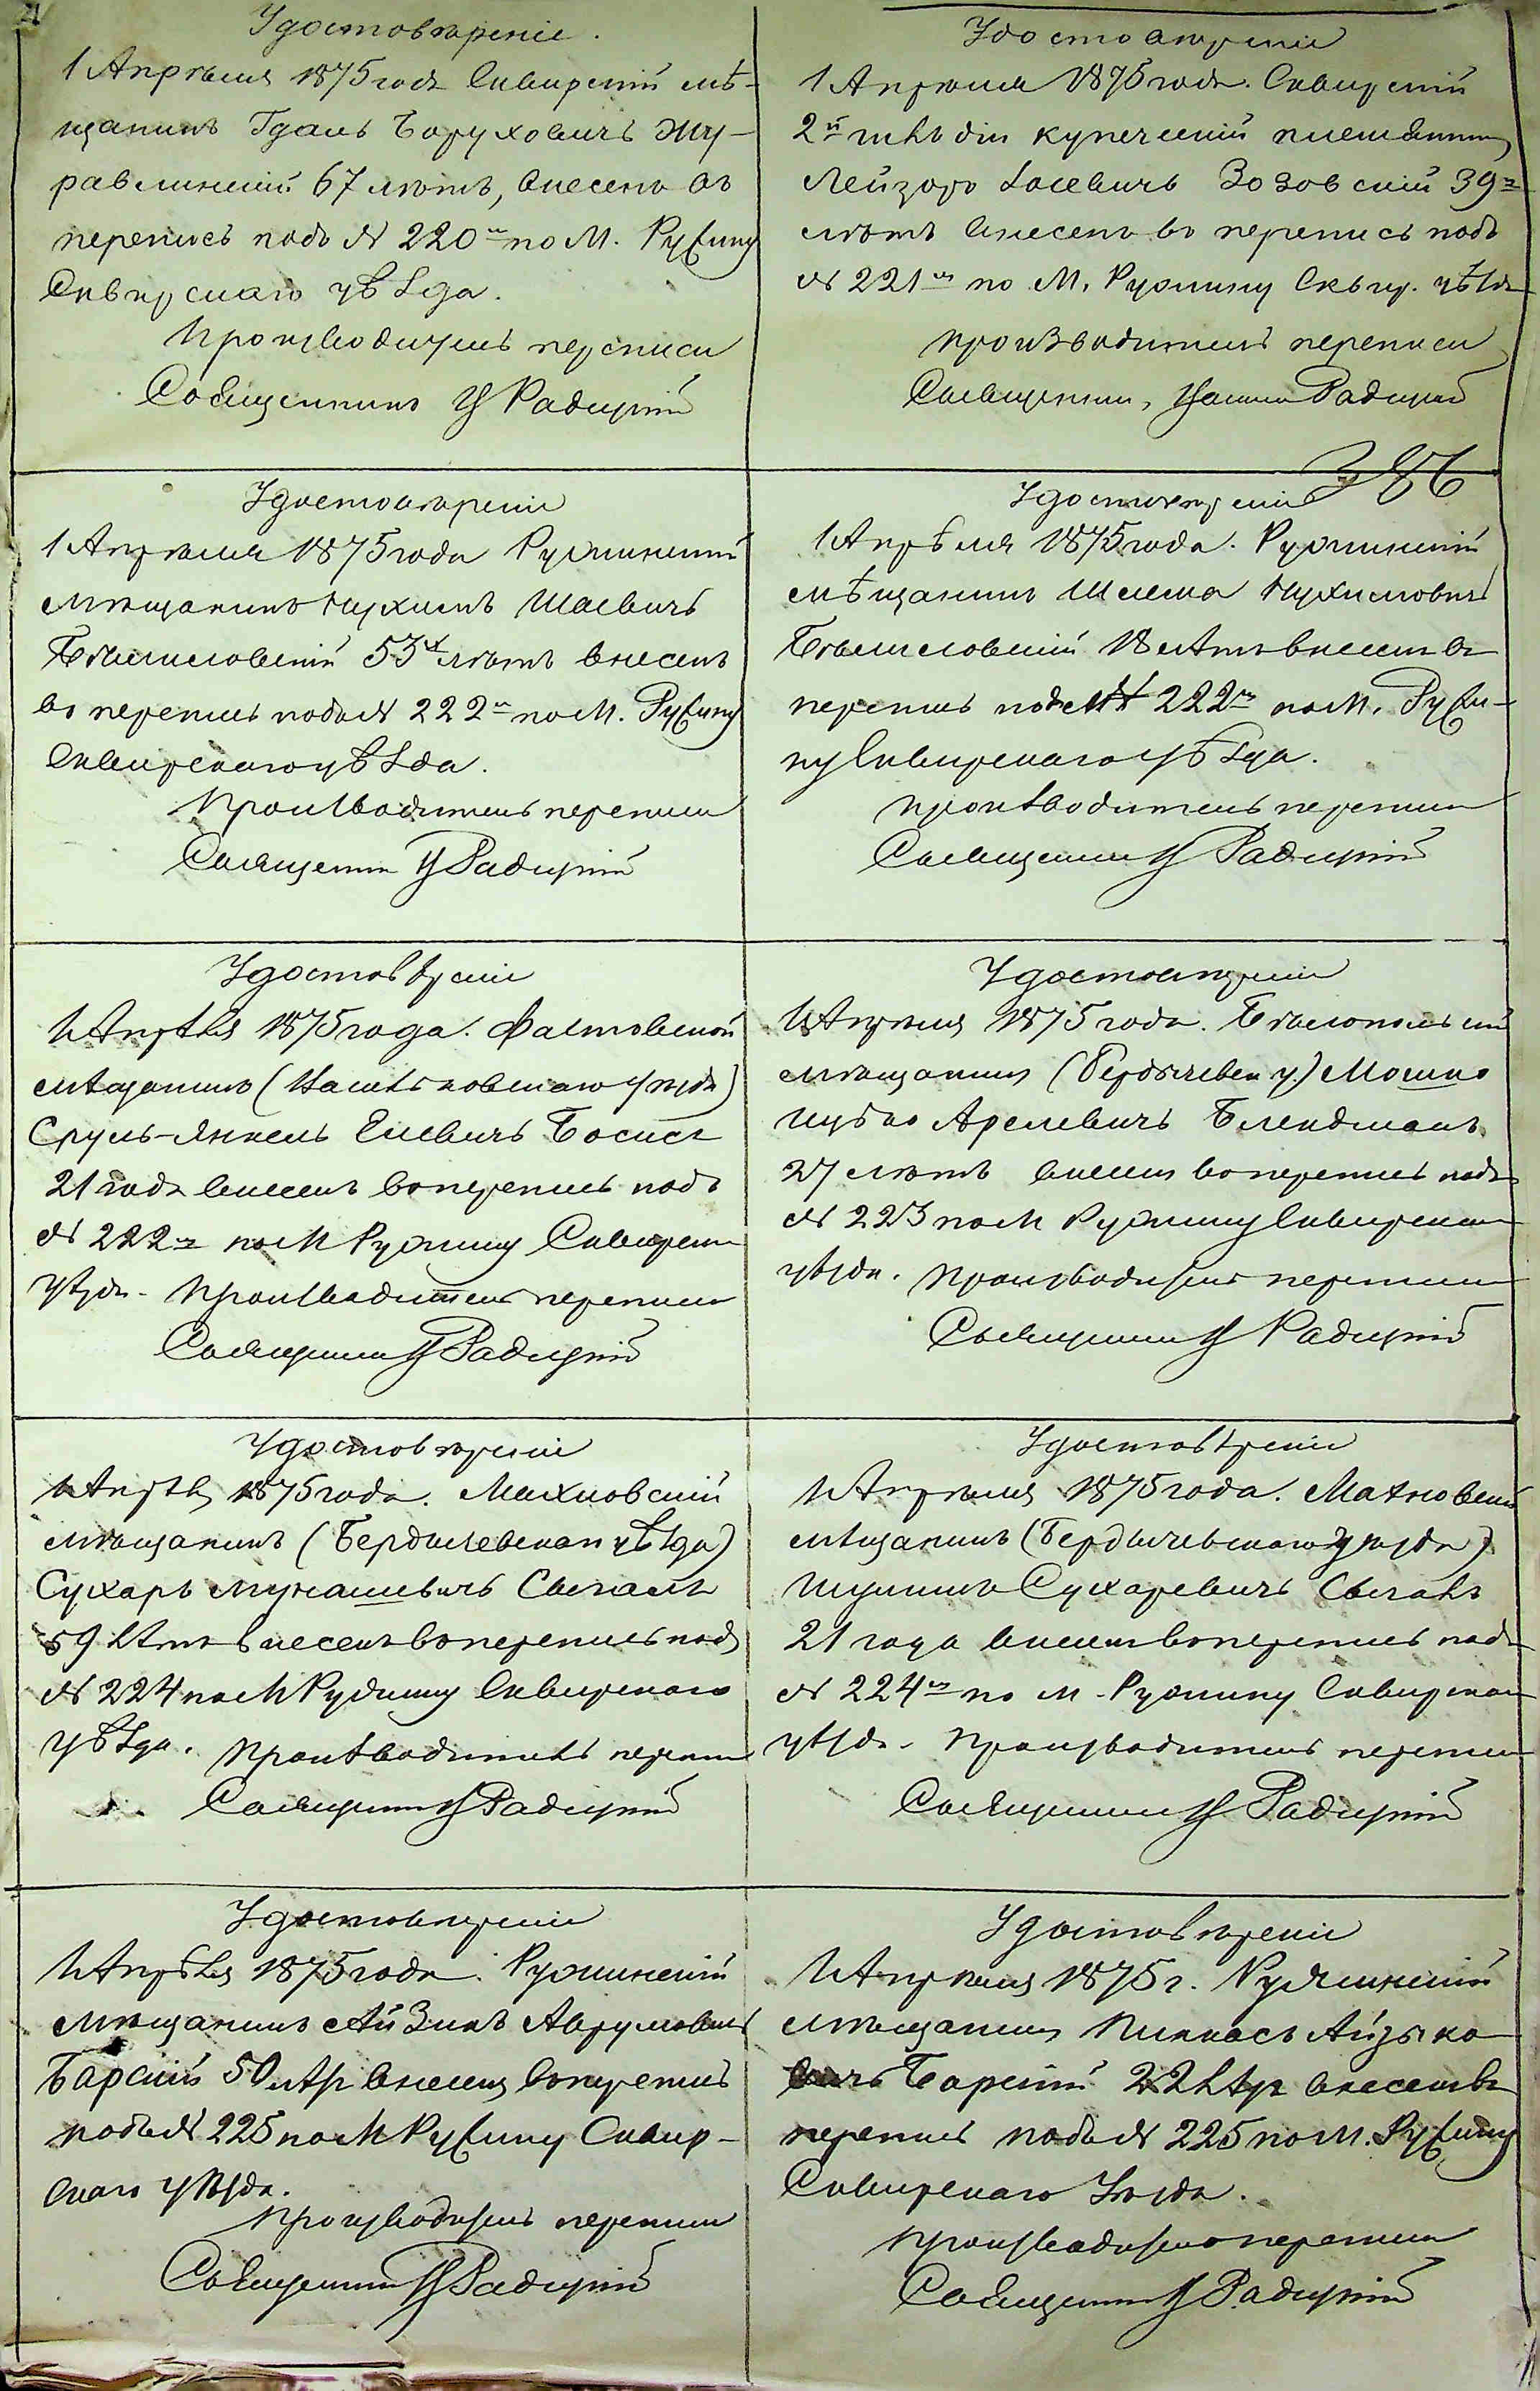 21
Удостовѣреніе.
1 Апрѣля 1875 года Сквирскій мѣ-
щанинъ Гдаль Боруховичъ Жу-
равлинскій 67 лѣтъ, внесенъ въ
перепись подъ № 220 по М. Ружину
Сквирскаго уѣзда.
Производитель переписи
Священникъ Радицкій
Удостовѣреніе
1 Апрѣля 1875 года. Сквирскій
2й гильдіи купеческій племянникъ
Лейзоръ Іосевичъ Зозовскій 39
лѣтъ внесенъ въ перепись подъ
№ 221 по М. Ружину Сквир. уѣзда
Производитель переписи
Священникъ Радицкій
386
Удостовѣреніе
1 Апрѣля 1875 года Ружинскій
мѣщанинъ Нухимъ Шаевичъ
Бѣлиловскій 53 лѣтъ внесенъ
въ перепись подъ № 222 по М. Ружину
Сквирскаго уѣзда.
Производитель переписи
Священникъ Радицкій
Удостовѣреніе
1 Апрѣля 1875 года. Ружинскій
мѣщанинъ Шлема Нухимовичъ
Бѣлиловскій 18 лѣтъ внесенъ въ
перепись подъ № 222 по М. Ружи-
ну Сквирскаго уѣзда.
Производитель переписи
Священникъ Радицкій
Удостовѣреніе
1 Апрѣля 1875 года. Фастовской
мѣщанинъ (Васильковскаго уѣзда)
Сруль-Янкель Елевичъ
21 года внесенъ въ перепись подъ
№ 222 по М Ружину Сквирска
уѣзда. Производитель переписи
Священникъ Радицкій
Удостовѣреніе
1 Апрѣля 1875 года. Бѣлопольскій
мѣщанинъ (Бердычевск у.) Мошко
Ицько Арелевичъ Блендманъ
27 лѣтъ внесенъ въ перепись подъ
№ 223 по М Ружину Сквирскаго
уѣзда. Производитель переписи
Священникъ Радицкій
Удостовѣреніе
1 Апрѣля 1875 года. Махновскій
мѣщанинъ (Бердычевскаго уѣзда)
Сухаръ Мунашевичъ
59 лѣтъ внесенъ въ перепись подъ
№ 224 по М Ружину Сквирскаго
уѣзда. Производитель переписи
Священникъ Радицкій
Удостовѣреніе
1 Апрѣля 1875 года. Махновскій
мѣщанинъ (Бердычевскаго уѣзда)
Шулимъ Сухаревичъ
21 года внесенъ въ перепись подъ
№ 224 по м. Ружину Сквирскаго
уѣзда. Производитель переписи
Священникъ Радицкій
Удостовѣреніе
1 Апрѣля 1875 года. Ружинскій
мѣщанинъ Айзикъ Аврумовичъ
Барскій 50 лѣтъ внесенъ въ перепись
подъ № 225 по М Ружину Сквир-
скаго уѣзда.
Производитель переписи
Священникъ Радицкій
Удостовѣреніе
1 Апрѣля 1875 г. Ружинскій
мѣщанинъ Пинхасъ Айзико-
вичъ Барскій 22 лѣтъ внесенъ въ
перепись подъ № 225 по М. Ружину
Сквирскаго Уѣзда.
Производитель переписи
Священникъ Радицкій